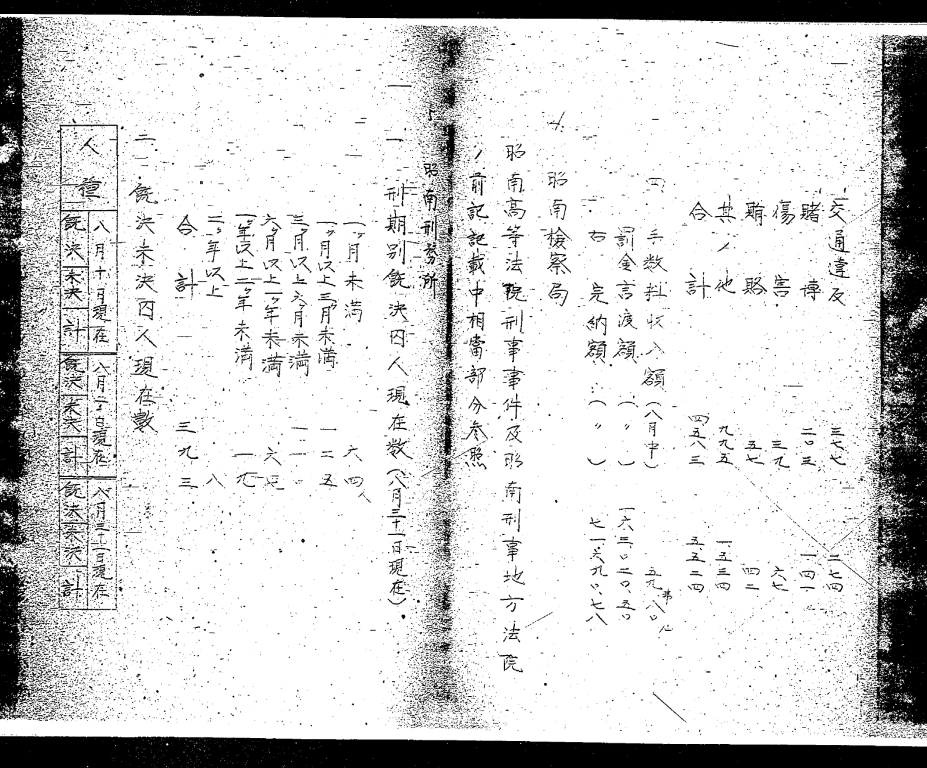 交通違反 三七七 二七四
賭博 二〇三 一四一
傷害 三九 六七
賄賂 五七 四二
其ノ他 九九五 一五三四
合計 四五八三 五五二四
手数料収入額(八月中) 五九八〇
罰金言渡額(〃) 一六三〇二〇.五〇
右完納額(〃) 七一六九〇.七八
昭南検察局
昭南高等法院刑事事件及昭南刑事地方法院
ノ前記記載中相當部分参照
昭南刑務所
一 刑期別既決囚人現在数(八月三十一日現在)
一ヶ月未満 六四人
一ヶ月以上三月未満 一二五
三ヶ月以上六月未満
六ヶ月以上一ヶ年未満
一ヶ年以上二ヶ年未満 一九
二ヶ年以上 八
合計 三九三
二 既決未決囚人現在数
人種
八月十日現在 八月二十日現在 八月三十一日現在
既決 未決 計 既決 未決 計 既決 未決 計